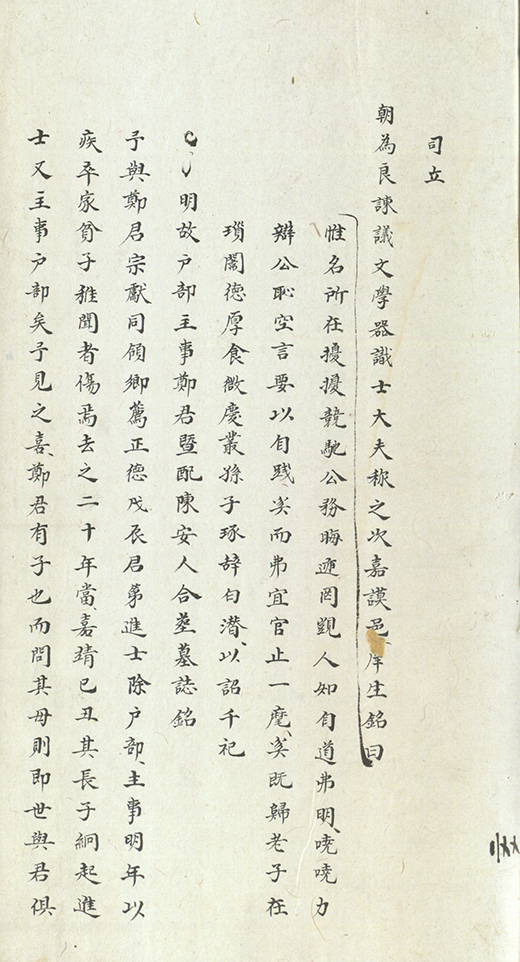 司立
朝為良諫議文學器識士大夫称之次嘉謨邑庠生銘曰
惟名所在擾擾競馳公務晦迹罔覬人如自道弗明、嘵嘵力
辯公恥空言要以自踐、奚而弗宜官止一麾、奚既歸老子在
瑣闈德厚食微慶叢孫子琢辞白潜、以詔千祀
明故户部主事鄭君暨配陳安人合塟墓誌銘
予與鄭君宗獻同領鄉薦正德戊辰君第進士除户部、主事明年以
疾卒家貧子稚聞者傷焉去之二十年當、嘉靖己丑其長子絅起進
士又主事户部矣予見之喜、鄭君有子也而問其母則即世與君俱